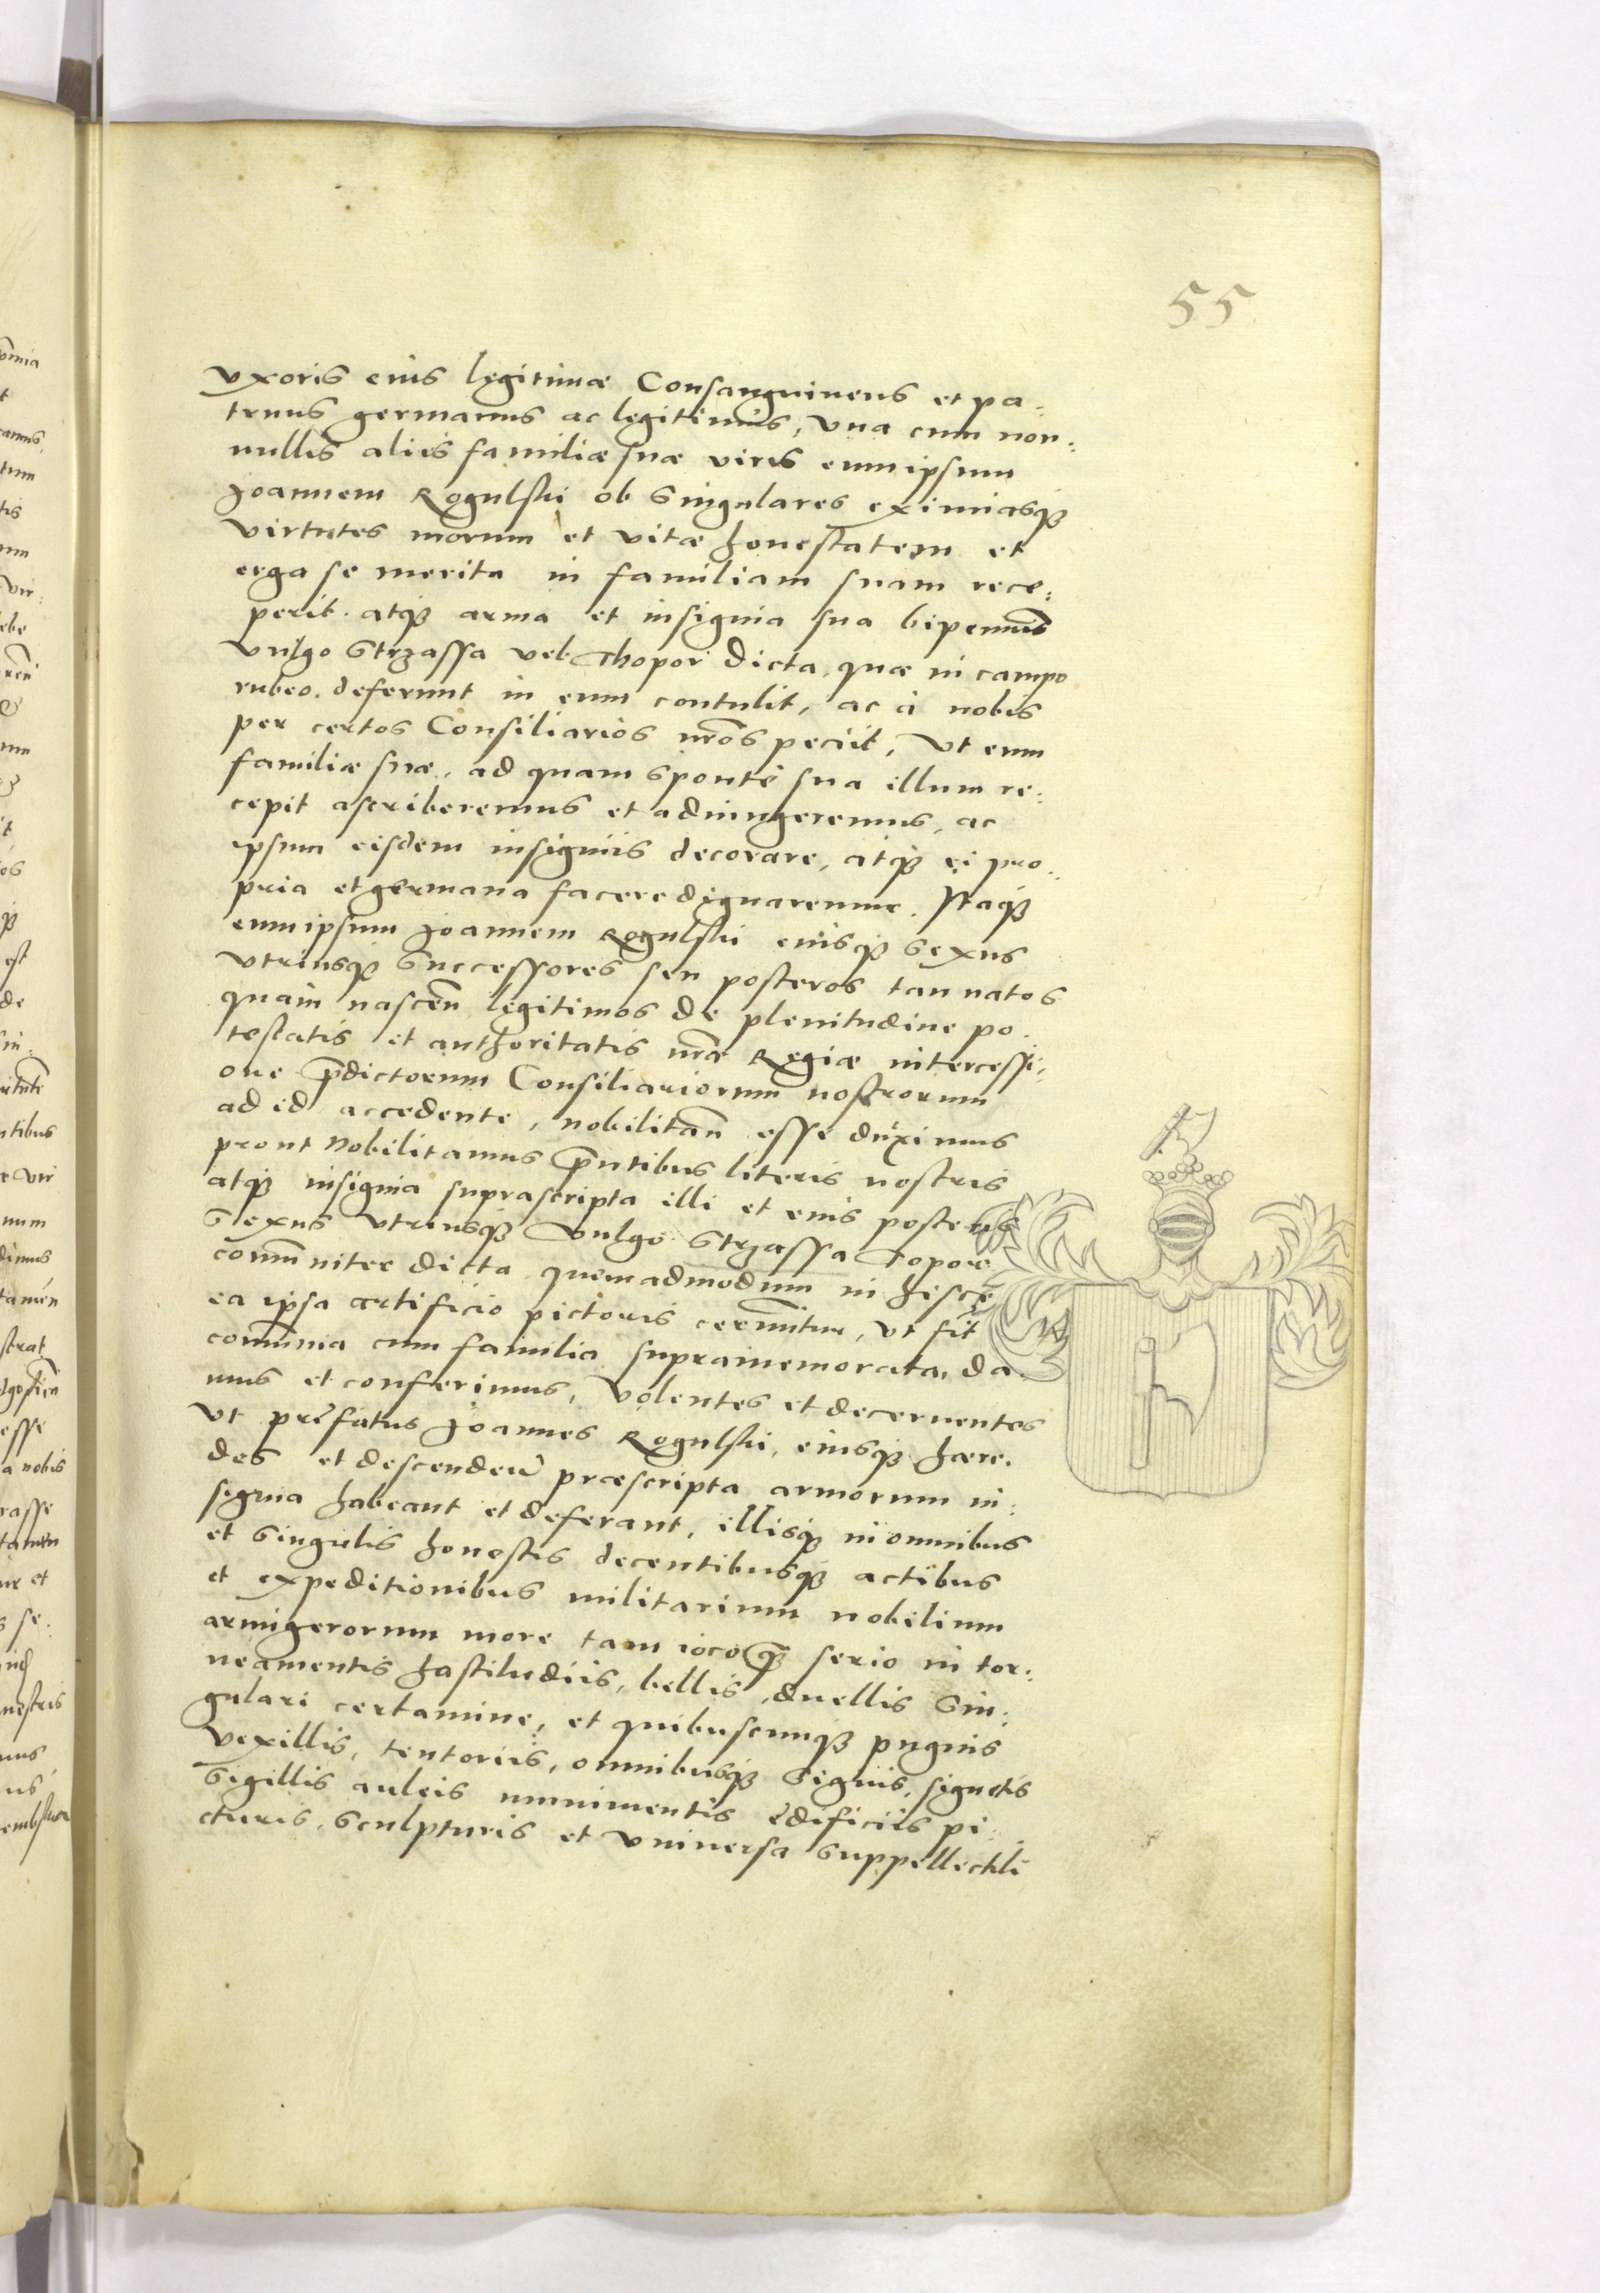 55
vxoris eius legitimæ Consanguineus et pa:
truus germanus ac legitimus, vna cum non:
nullis aliis familiæ suæ viris eum ipsum
Joannem Rogulski ob singulares eximiasq3
virtutes morum et vitæ honestatem et
erga se merita in familiam suam rece:
perit. atq3 arma et insignia sua bipennis
vulgo Strzassa vel Thopor dicta, quæ in campo
rubeo deferunt in eum contulit, ac à nobis
per certos Consiliarios nr̃os peciit, vt eum
familiæ suæ, ad quam sponte sua illum re:
cepit ascriberemus et adiungeremus, ac
ipsum eisdem insigniis decorare, atq3 ei pro:
pria et germana facere dignaremur. Itaq3
eum ipsum Joannem Rogulski eiusq3 sexus
vtriusq3 successores seu posteros tam natos
quam nascen̄ legitimos de plenitudine po:
testatis et authoritatis nr̃æ Regiæ intercessi:
one p̄dictorum Consiliariorum nostrorum
ad id accedente, nobilitan̄ esse duximus
prout Nobilitamus p̄ntibus literis nostris
atq3 insignia suprascripta illi et eius posteris
sexus vtriusq3 vulgo Strzassa Topor
com̄uniter dicta quemadmodum in hisce
ea ipsa artificio pictoris cernuntur, vt sint
com̄unia cum familia supramemorata, da:
mus et conferimus, volentes et decernentes
vt præfatus Joannes Rogulski, eiusq3 hære:
des et descenden̄ præscripta armorum in:
signia habeant et deferant, illisq3 in omnibus
et singulis honestis decentibusq3 actibus
et expeditionibus militarium nobilium
armigerorum more tam ioco q̄3 serio in tor:
neamentis hastiludiis, bellis, duellis sin:
gulari certamine, et quibuscunq3 pugnis
vexillis, tentoriis, omnibusq3 signis, signetis
sigillis auleis munimentis ędificiis pi:
cturis, sculpturis et vniuersa suppellectili